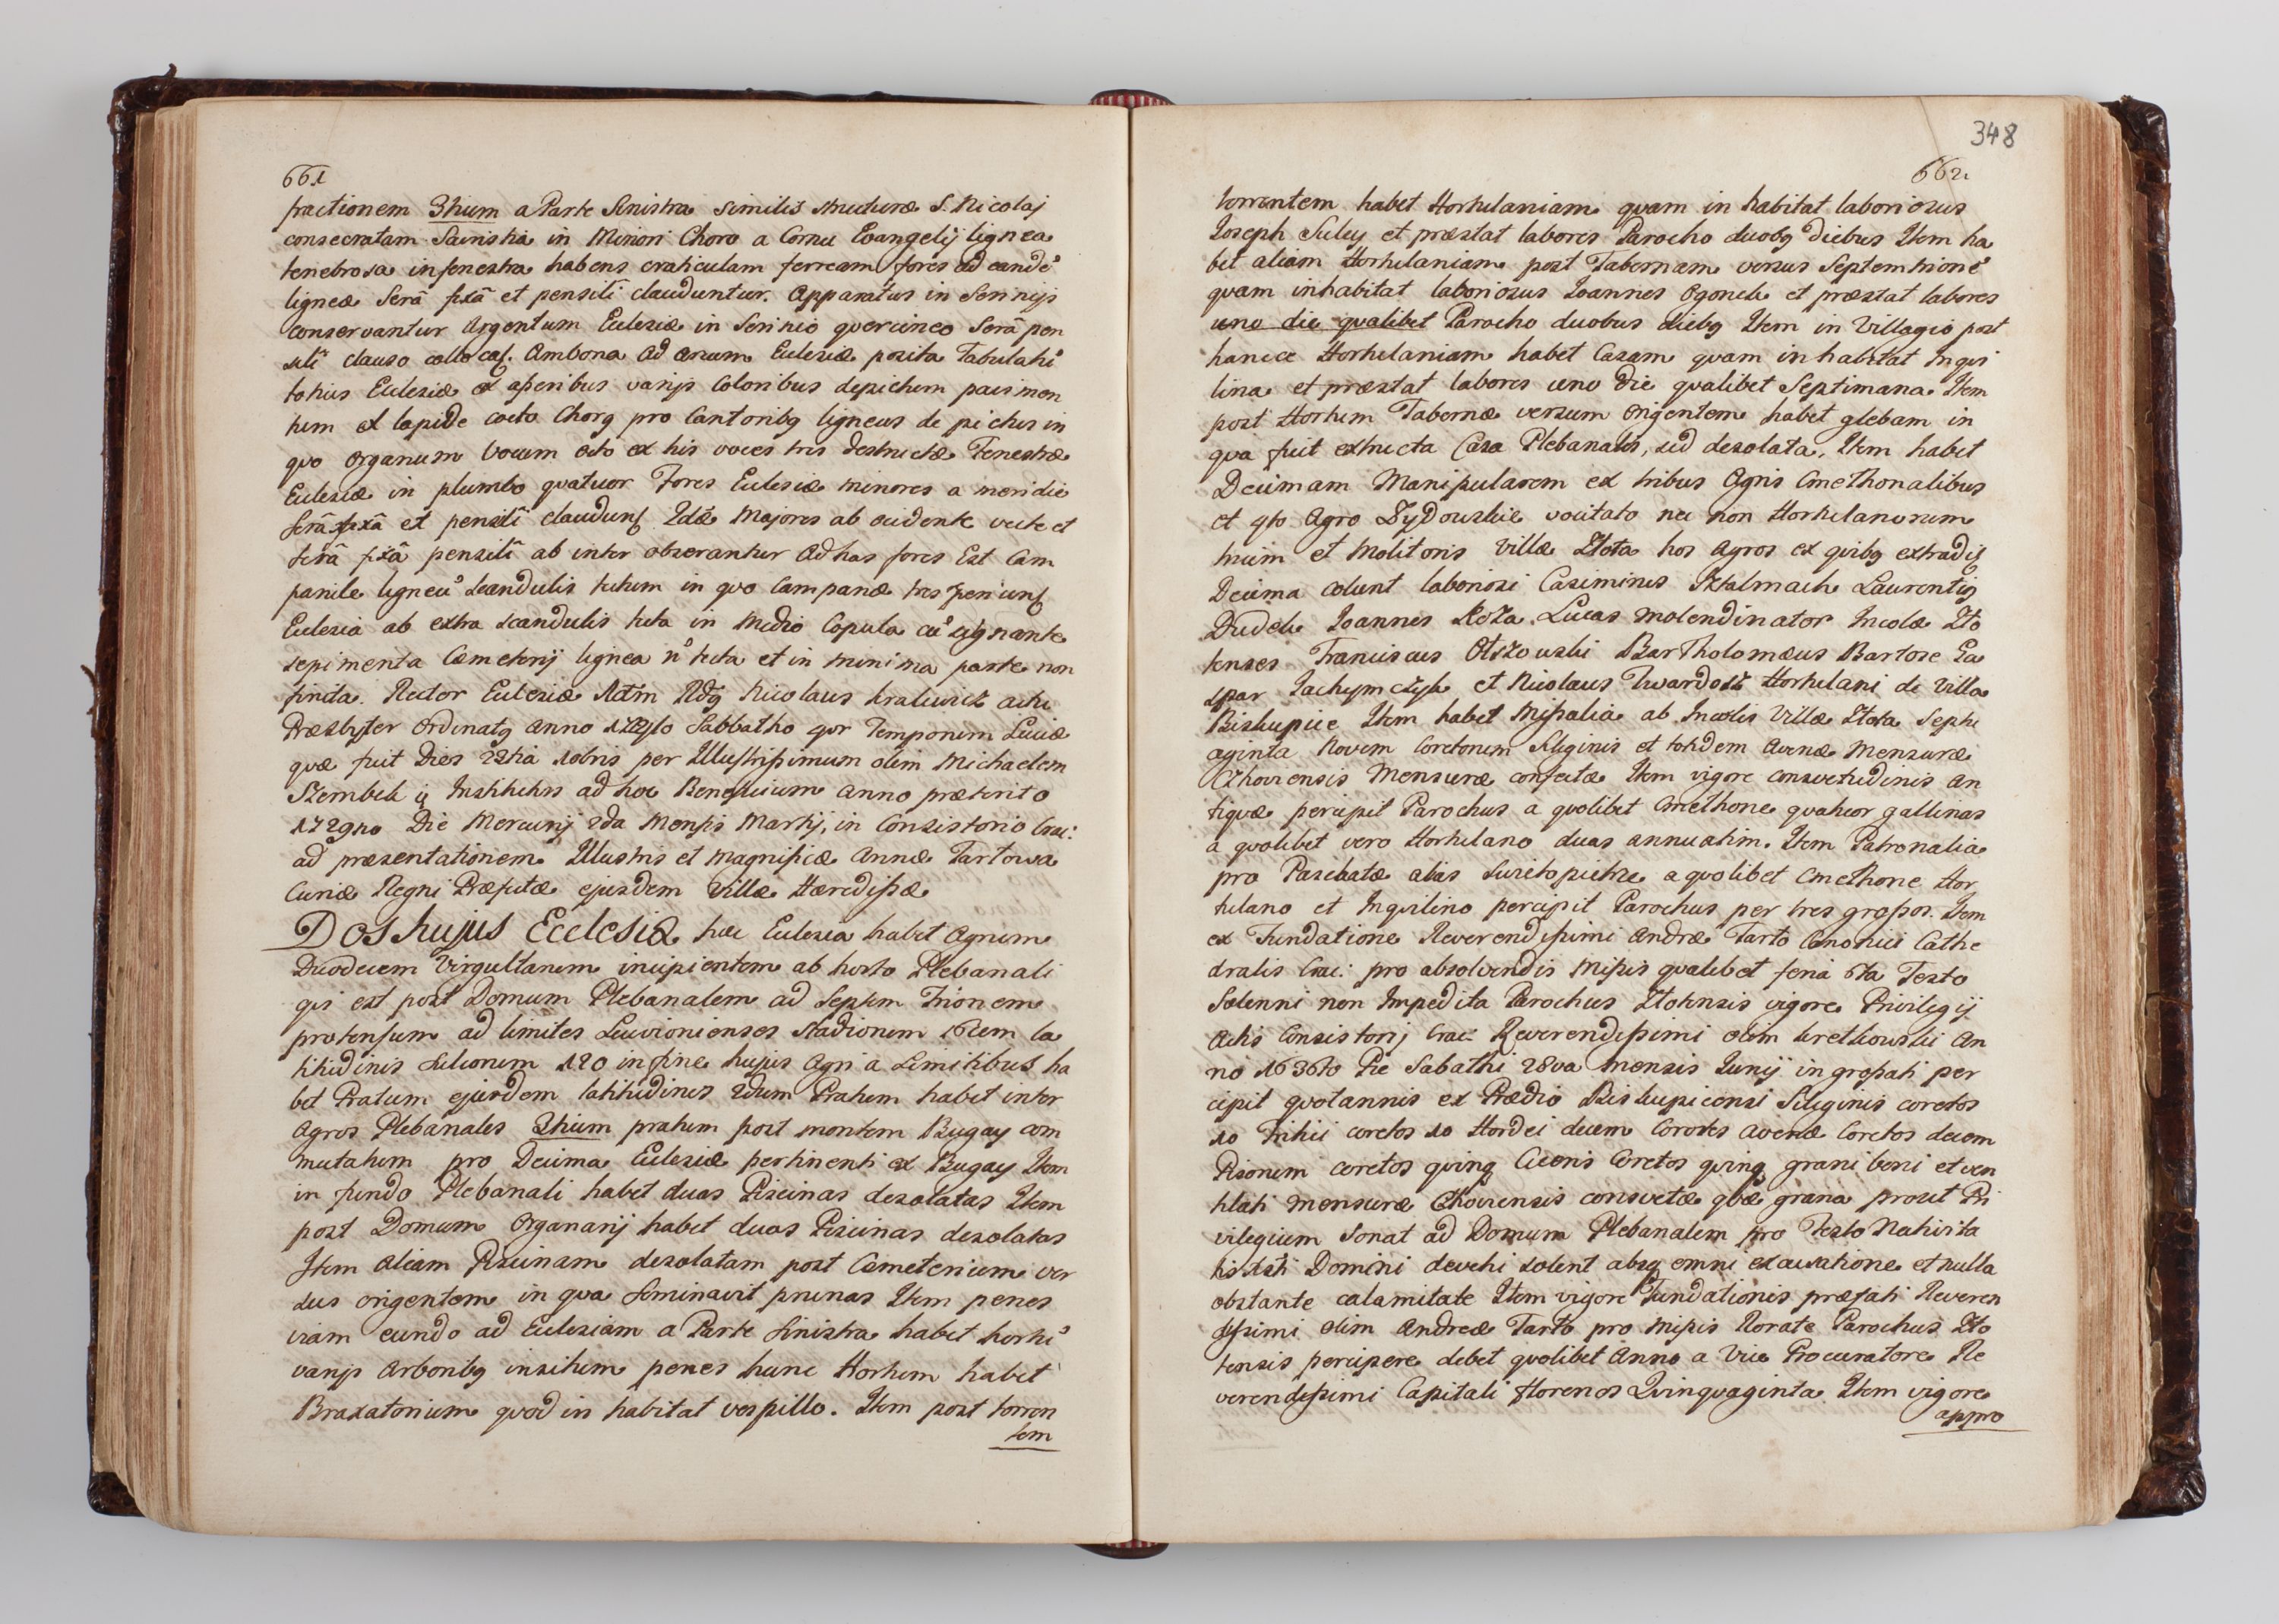 661
fractionem 3tium a Parte Sinistra similis structuræ S. Nicolaj
consecratam Sacristia in Minori Choro a Cornu Evangelij lignea
tenebrosa in fenestra habens craticulam ferream fores ad eandē
ligneæ Serâ fixâ et pensili clauduntur. Apparatus in Scrinijs
conservantur Argentum Eclesiæ in Scrinio quercineo Serâ pen
sili clauso collocaʃ. Ambona ad arcum Eclesiæ posita Tabulatū
totius Eclesiæ ex aperibus varijs Coloribus depictum pavimen
tum ex lapide cocto Chorq pro Cantoribq ligneus de pictus in
quo Organum Vocum octo ex his voces tres destructæ Fenestræ
Eclesiæ in plumbo quatuor Fores Eclesiæ minores a meridie
Serâ fixâ et pensili claudunʃ Majores ab ocidente vecte et
serâ fixâ pensili ab inter obserantur ad has fores Est Cam
panile ligneū Scandulis tectum in quo Campanæ tres
Eclesia ab extra scandulis tecta in Medio Copula cū signante
sepimenta Cæmeterij lignea ñ tecta et in minima parte non
finita. Rector Eclesiæ Nicolaus
Præsbyter Ordinatq Anno Sabbatho qor Temporum Luciæ
quæ fuit Dies Xbris per Illustrissimum olim Michaelem
Szembek Institutus ad hoc Beneficium Anno præterito
1729no Die Mercurij 2da Mensis Martij, in Consistorio Crac:
ad præsentationem Illustris et Magnificæ Annæ Tartowa
Curiæ Regni Præfectæ ejusdem Villæ Hæredissæ
Dos hujus Ecclesiæ hæc Eclesia habet Agrum
Duodecem Virgultarum incipientem ab horto Plebanali
qui est post Domum Plebanalem ad Septem Trionem
protensum ad limites Stadiorum 16cem la
titudinis Sulcorum 120 in fine hujus Agri a Limitibus ha
bet Pratum ejusdem latitudinis 2dum Pratum habet inter
Agros Plebanales 3tium pratum post montem Bugay com
mutatum pro Decima Eclesiæ pertinenti ex Bugay Item
in fundo Plebanali habet duas Piscinas desolatas Item
post Domum Organarij habet duas Piscinas desolatas
Item aliam Piscinam desolatam post Cæmeterium ver
sus origentem in qua Seminavit prunas Item penes
viam eundo ad Eclesiam a Parte Sinistra habet hortū
varijs Arboribq insitum penes hunc Hortum habet
Braxatorium quod in habitat vespillo. Item post torren
tem
348
662.
torrentem habet Hortulaniam quam in habitat laboriosus
Joseph Suley et præstat labores Parocho duobq diebus Item ha
bet aliam Hortulaniam post Tabernam versus Septemtrionē
quam inhabitat laboriosus Joannes Ogonek et præstat labores
uno die qualibet Parocho duobus diebq Item in Villagio post
hancce Hortulaniam habet Casam quam in habitat Inqvi
lina et præstat labores uno die qvalibet Septimana Item
post Hortum Tabernæ versum Origentem habet glebam in
qva fuit extructa Casa Plebanalis, sed desolata, Item habet
Decimam Manipularem ex tribus Agris Cmethonalibus
et qto Agro Zydowskie vocitato nec non Hortulanorum
trium et Molitoris Villæ Złota hos Agros ex qvibq extradiʃ
Decima colunt laboriosi Casimirus Sztalmach Laurentiq
Dudek Joannes Koza Lucas Molendinator Incolæ Zło
tenses Franciscus Olszowski Bartholomæus Bartosz Ga
spar Jachymczyk et Nicolaus Twardosz Hortulani de Villa
Biskupice Item habet Missalia ab Incolis Villæ Złota Septu
aginta Novem Coretorum Siliginis et totidem Avenæ Mensuræ
Czhoviensis Mensuræ confectæ Item vigore consvetudinis an
tiquæ percipit Parochus a qvolibet Cmethone quatuor gallinas
a qvolibet vero Hortulano duas annuatim. Item Patronalia
pro Pascibatæ alias Swietopietrze a qvolibet Cmethone Hor
tulano et Inqvilino percipit Parochus per tres grossos. Item
ex Fundatione Reverendissimi Andræ Tarło Canonici Cathe
dralis Crac: pro absolvendis Missis qvalibet feria 6ta Festo
Solenni non Impedita Parochus Złotensis vigore Privilegij
Actis Consistorij Crac: Reverendissimi olim An
no 1636to Die Sabathi 28va Mensis Junij ingrossati per
cipit qvotannis ex Prædio Biskupicensi Siliginis coretos
10 Tritici coretos 10 Hordei decem Coretos Avenæ Coretos decem
Pisorum coretos qvinq Ciceris Coretos qvinq grani boni et ven
tilati Mensuræ Czhoviensis consvetæ qvæ grana prout Pri
vilegium Sonat ad Domum Plebanalem pro Festo Nativita
tis Xsti Domini devehi solent absq omni excusatione et nulla
obstante calamitate Item vigore Fundationis præfati Reveren
dissimi olim Andreæ Tarło pro Missis Rorate Parochus Zło
tensis percipere debet qvolibet Anno a Vice Procuratore Re
verendissimi Capituli florenos Qvinqvaginta Item vigore
appro